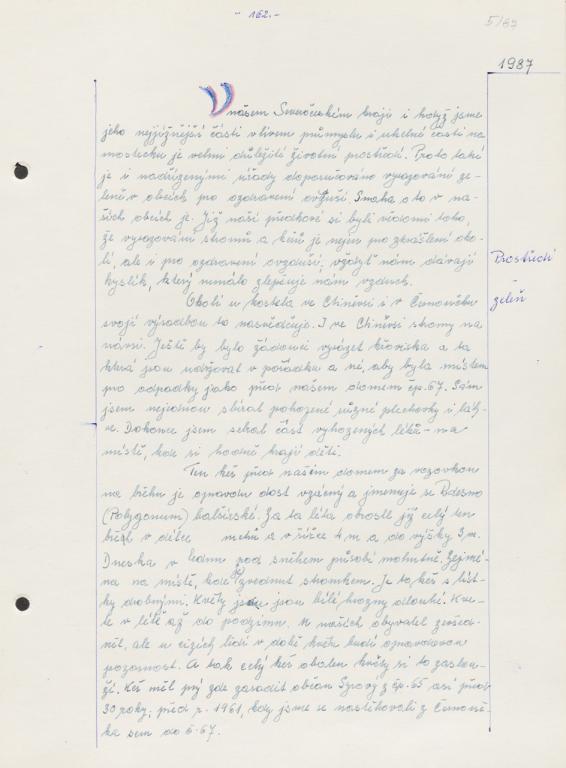 - 162.-
5/87
1987
V našem Severočeském kraji i když jsme
jeho nejjižnější části vlivem průmyslu i uhelné části na
mostecku je velmi důležité životní prostředí. Proto také
je i nadřízenými úřady doporučováno vysazování ze-
leně v obcích pro ozdravení ovzduší. Snaha o to v na-
šich obcích je. Již naši předkové si byli vědomi toho,
že vysazování stromů a keřů je nejen pro zkrášlení oko-
lí, ale i pro ozdravení ovzduší, vždyť nám dávají
kyslík, který nemálo zlepšuje nám vzduch.
Prostředí
-
zeleň
Okolí u kostela ve Chiněvsi i v Černovičku
svojí výsadbou to nasvědčuje. I ve Chiněvsi stromy na
návsi. Ještě by bylo žádoucí vysázet křoviska a ta
která jsou udržovat v pořádku a né, aby byla místem
pro odpadky jako před našem domem čp. 67. Sám
jsem nejednou sbíral pohozené různé plechovky i láh-
ve. Dokonce jsem sebral část vyhozených léků - na
místě, kde si hodně hrají děti.
Ten keř před naším domem za vozovkou
na břehu je opravdu dost vzácný a jmenuje se Rdesno
(Polygonum) balšánské. Za ta léta obrostl již celý ten
břeh v délce metrů a v šířce 4 m a do výšky 3 m.
Dneska v lednu pod sněhem působí mohutně. Zejmé-
na na místě, kde zvednut stromkem. Je to keř s líst-
ky drobnými. Květy jsou bílé hrozny dlouhé. Kve-
te v létě až do podzimu. U našich obyvatel zevšed-
něl, ale u cizích lidí v době květu budí opravdovou
pozornost. A tak celý keř obalen květy si to zaslou-
ží. Keř měl prý zde zasadit občan Syrový z čp. 65 asi před
30 roky, před r. 1961, kdy jsme se nastěhovali z Černovič-
ka sem do č. 67.